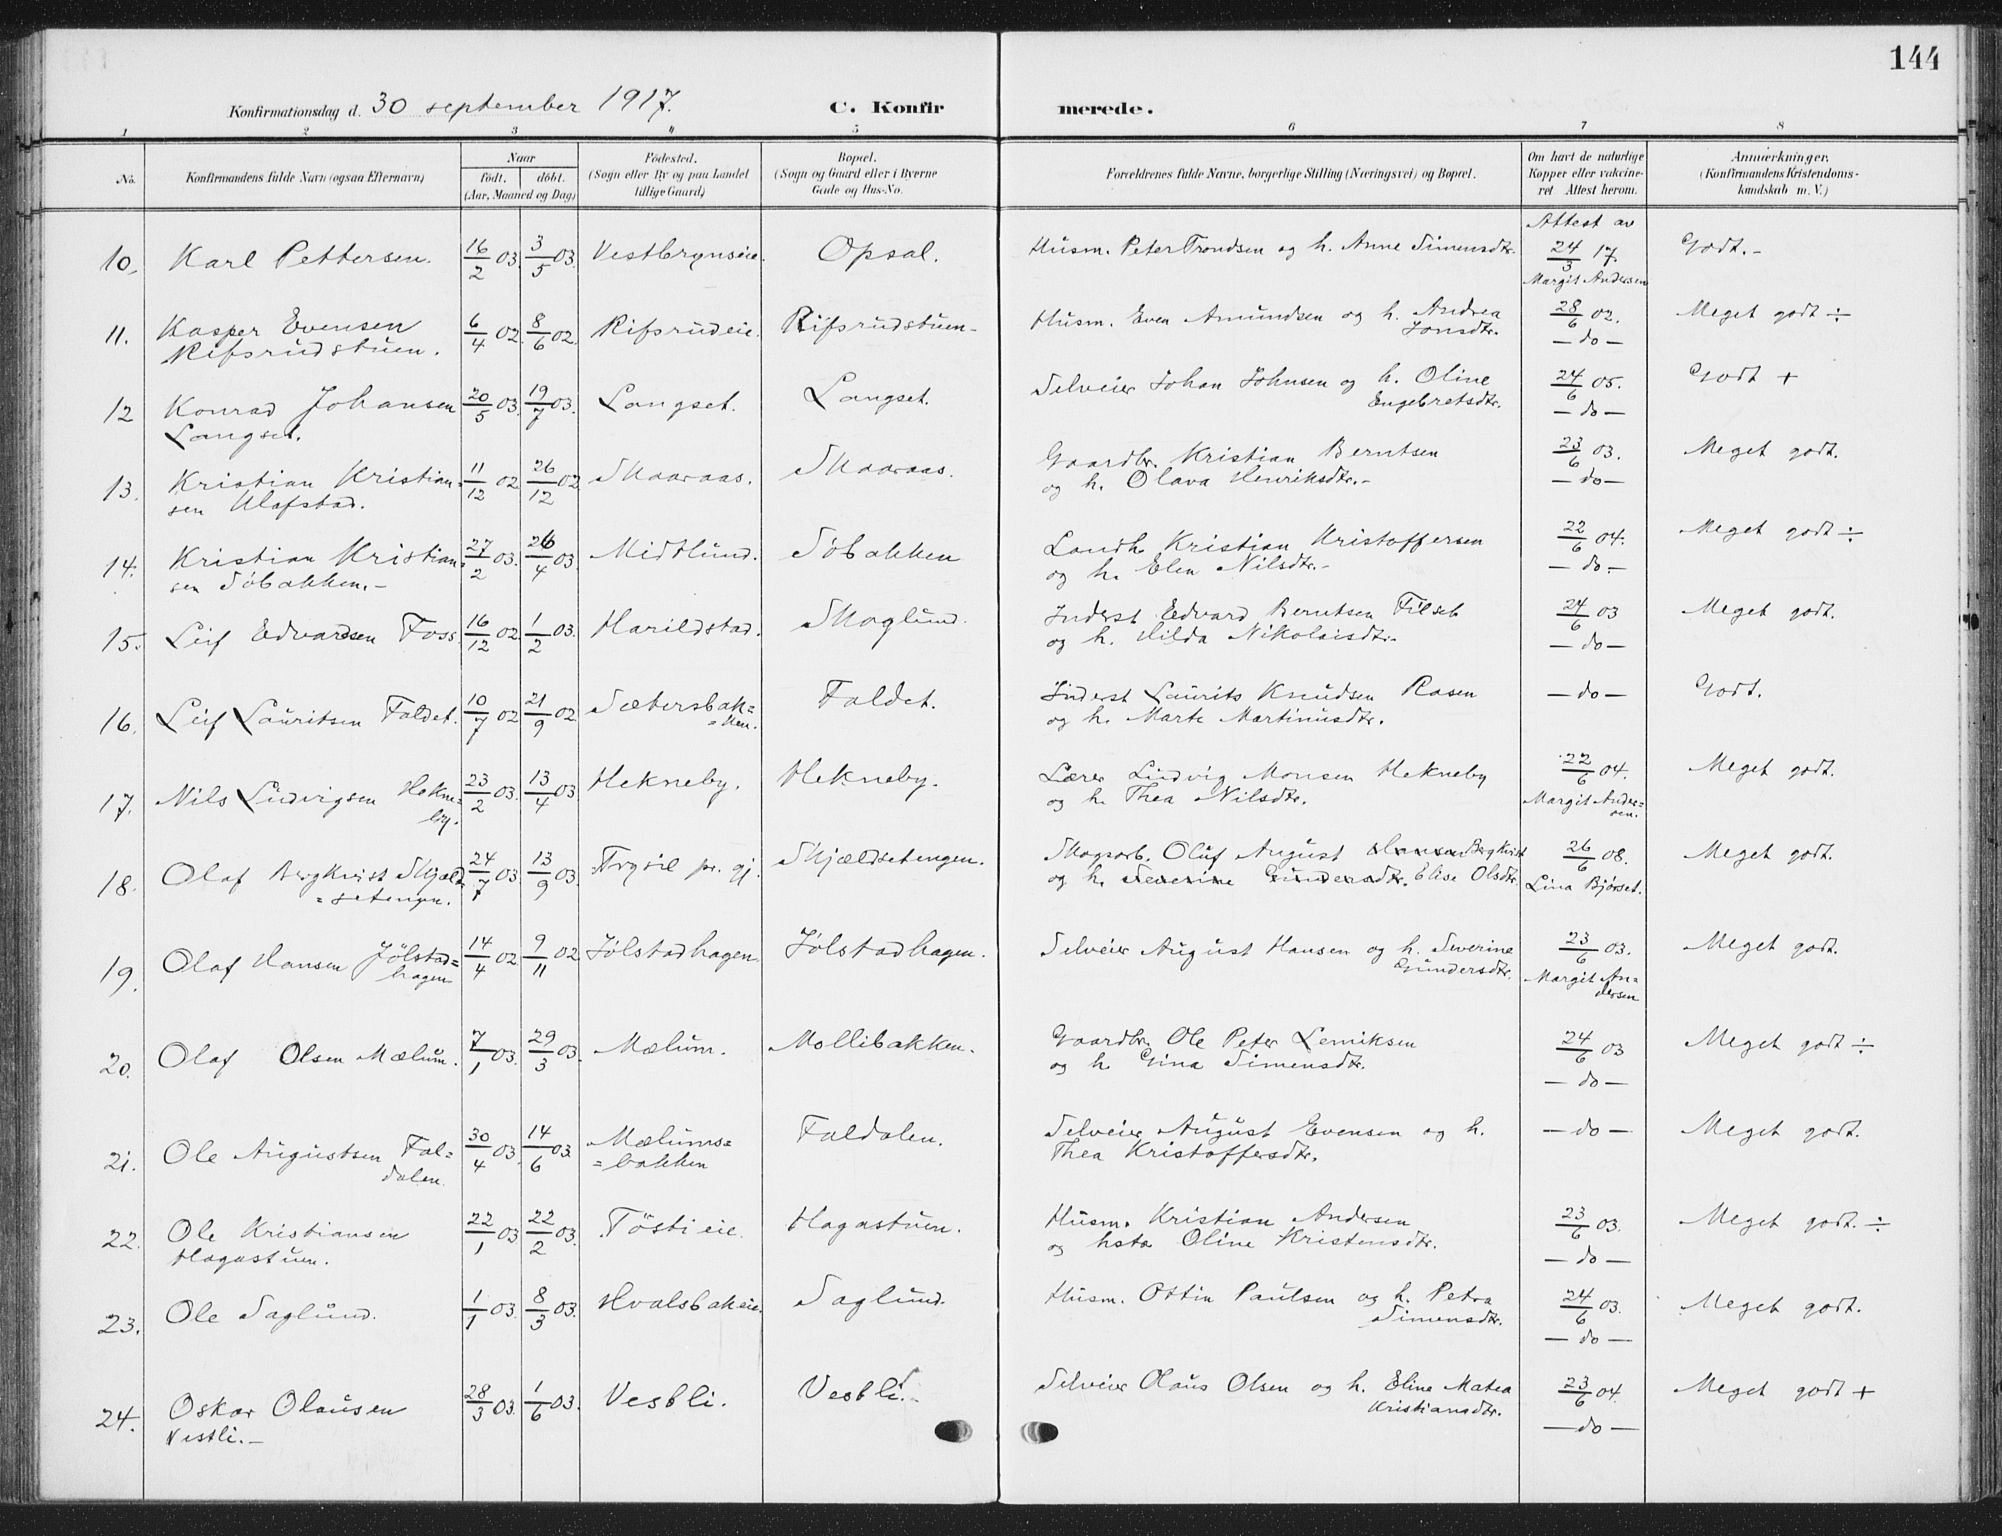 144
Konfirmationsdag d. 30 september 1917. C. Konfirmerede.
1 2 3 4 5 6 7 8
No. Konfirmandens fulde Navn (ogsaa Efternavn) Naar født. døbt. (Aar, Maaned og Dag) Fødested. (Sogn eller By og paa Landet tillige Gaard) Bopæl. (Sogn og Gaard eller i Byerne Gade og Hus-No. Forældrenes fulde Navne, borgerlige Stilling (Næringsvei) og Bopæl. Om havt de naturlige Kopper eller vakcineret Attest herom. Anmærkninger. (Konfirmandens Kristendomskundskab m. V.)
10. Karl Pettersen. 16/2 03. 3/5 03. Vestbrynseie. Opsal. Husm. Peter Trondsen og h. Anne Simensdtr. Attest av 24/3 17. Margit Andersen Godt.-
11. Kasper Evensen Rifsrudstuen. 6/4 02. 8/6 02. Rifsrudeie. Rifsrudstuen- Husm. Even Amundsen og h. Andrea Jonsdtr. 28/6 02. — do — Meget godt ÷
12 Konrad Johansen Langset. 20/5 03. 19/7 03. Langset. Langset. Selveier Johan Johnsen og h. Oline Engebretsdtr. 24/6 05. — do — Godt +
13. Kristian Kristian= sen Ulafstad. 11/12 02 26/12 02 Skaaraas. Skaaraas. Gaardbr. Kristian Berntsen og h. Olava Henriksdtr.- 23/6 03. — do — Meget godt.
14. Kristian Kristian= sen Söbakken.- 27/2 03. 26/4 03. Midtlund. Söbakken Landh. Kristian Kristoffersen og h. Elen Nilsdtr.- 22/6 04. — do.— Meget godt ÷
15. Leif Edvardsen Foss. 16/12 02 1/2 03. Harildstad. Skoglund. Inderst Edvard Berntsen Filseb og h. Hilda Nikolaisdtr- 24/6 03 — do — Meget godt.
16. Leif Lauritsen Faldet. 10/7 02 21/9 02 Sætersbak= =ken. Faldet. Inderst Laurits Knudsen Rosen og h. Marte Martinusdtr. — do — Godt.
17. Nils Ludvigsen Hekne= by. 23/2 03. 13/4 03 Hekneby. Hekneby. Lærer Ludvig Monsen Hekneby og h. Thea Nilsdtr. 22/6 04. Margit Ander= sen. Meget godt.
18. Olaf Bergkvist Skjæld= =setengn. 24/7 03. 13/9 03. Trysil pr. gj. Skjældsetengen. Skogsarb. Oluf August Hansen Bergkvist og h. Severine Gundersdtr. Elise Olsdtr. 26/6 08. Lina Bjørset. Meget godt.
19. Olaf Hansen Jölstad= hagen 14/4 02 9/11 02 Jölstadhagen. Jölstadhagen. Selveier August Hansen og h. Severine Gundersdtr. 23/6 03. Margit An= dersen Meget godt.
20. Olaf Olsen Mælum. 7/1 03. 29/3 03. Mælum. Mollibakken. Gaardbr. Ole Peter Lemiksen og h. Gina Simensdtr. 24/6 03 — do — Meget godt ÷
21. Ole Augustsen Fal= dalen. 30/4 03. 14/6 03. Mælums= =bakken Faldalen. Selveier August Evensen og h. Thea Kristoffersdtr. — do — Meget godt.
22. Ole Kristiansen Hagastuen. 22/1 03 22/2 03. Tösti eie. Hagastuen. Husm. Kristian Andersen og hsto Oline Kristensdtr. 23/6 03. — do — Meget godt. ÷
23. Ole Saglund. 1/1 03. 8/3 03. Hvalsbakeie. Saglund. Husm. Ottin Paulsen og h. Petra Simensdtr. 24/6 03. — do — Meget godt.
24. Oskar Olausen Vestli.- 28/3 03. 1/6 03. Vestli. Vestli.- Selveier Olaus Olsen og h. Eline Matea Kristiansdtr. 23/6 04. — do — Meget godt +